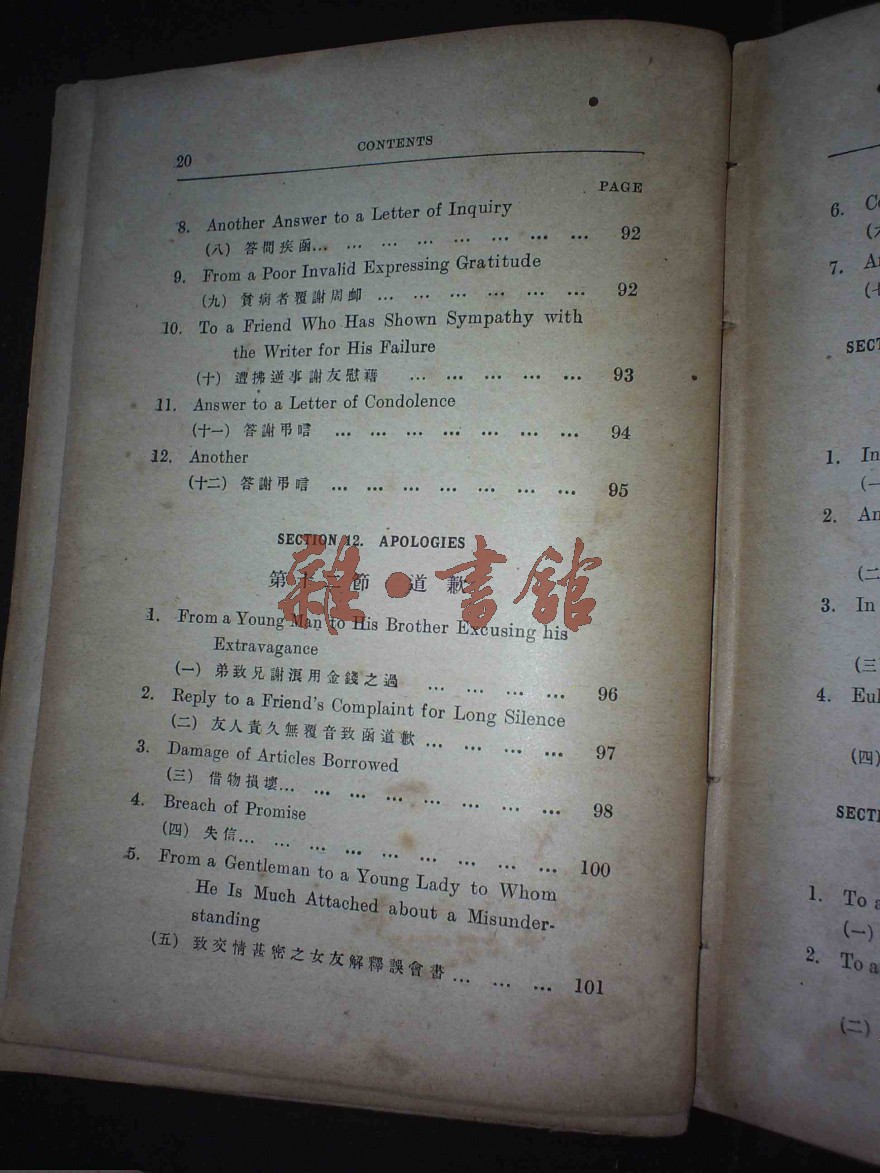 20 CONTENTS
PAGE
8. Another Answer to a Letter of Inquiry
(八) 答問疾函... ... ... ... ... ... ... ... 92
9. From a Poor Invalid Expressing Gratitude
(九) 貧病者覆謝周卹 ... ... ... ... ... ... 92
10. To a Friend Who Has Shown Sympathy with
the Writer for His Failure
(十) 遭拂逆事謝友慰藉 ... ... ... ... ... 93
11. Answer to a Letter of Condolence
(十一) 答謝弔唁 ... ... ... ... ... ... ... 94
12. Another
(十二) 答謝弔唁 ... ... ... ... ... ... ... 95
SECTION 12. APOLOGIES
第十二節 道歉
雜·書館
1. From a Young Man to His Brother Excusing his
Extravagance
(一) 弟致兄謝濵用金錢之過 ... ... ... ... 96
2. Reply to a Friend's Complaint for Long Silence
(二) 友人責久無覆音致函道歉 ... ... ... ... 97
3. Damage of Articles Borrowed
(三) 借物損壞... ... ... ... ... ... ... ... 98
4. Breach of Promise
(四) 失信... ... ... ... ... ... ... ... ... ... 100
5. From a Gentleman to a Young Lady to Whom
He Is Much Attached about a Misunder-
standing
(五) 致交情甚密之女友解釋誤會書 ... ... ... 101
6.
7.
SECT
1. In
(一
2. An
(二
3. In
(三
4. Eul
(四)
SECT
1. To a
(一)
2. To a
(二)